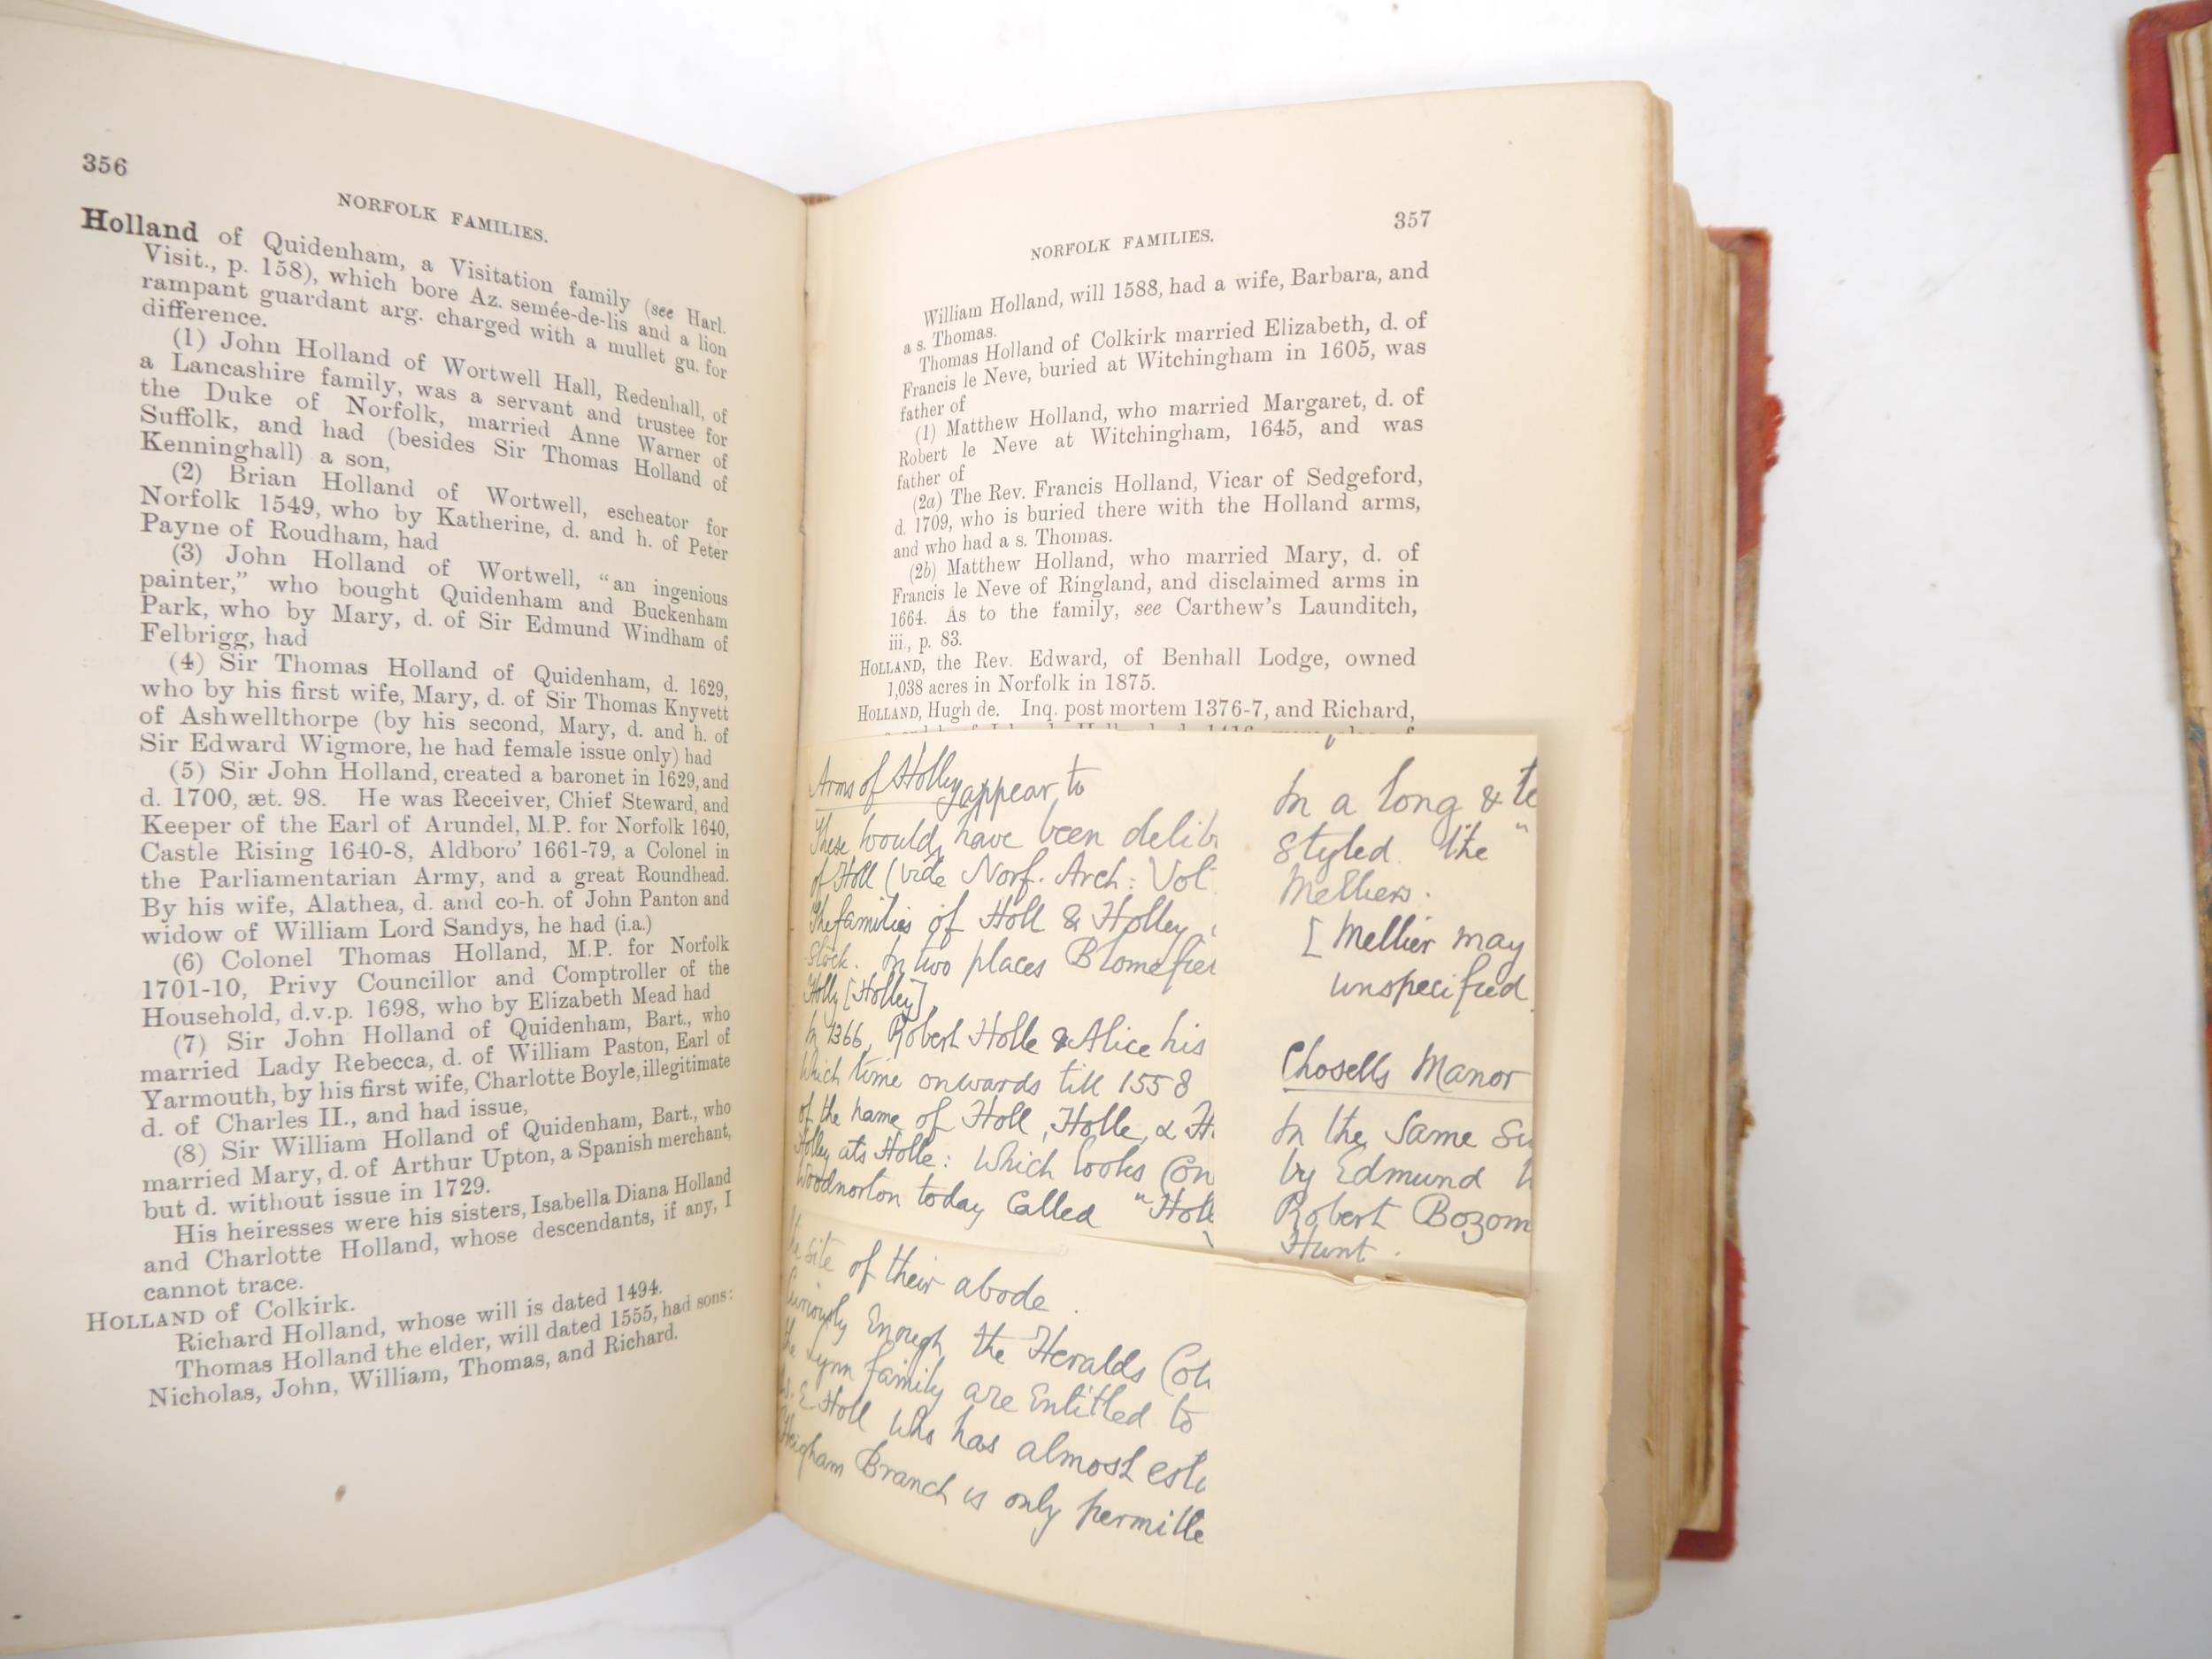 356
NORFOLK FAMILIES.
Holland of Quidenham, a Visitation family (see Harl.
Visit., p. 158), which bore Az. semée-de-lis and a lion
rampant guardant arg. charged with a mullet gu. for
difference.
(1) John Holland of Wortwell Hall, Redenhall, of
a Lancashire family, was a servant and trustee for
the Duke of Norfolk, married Anne Warner of
Suffolk, and had (besides Sir Thomas Holland of
Kenninghall) a son,
(2) Brian Holland of Wortwell, escheator for
Norfolk 1549, who by Katherine, d. and h. of Peter
Payne of Roudham, had
(3) John Holland of Wortwell, "an ingenious
painter," who bought Quidenham and Buckenham
Park, who by Mary, d. of Sir Edmund Windham of
Felbrigg, had
(4) Sir Thomas Holland of Quidenham, d. 1629,
who by his first wife, Mary, d. of Sir Thomas Knyvett
of Ashwellthorpe (by his second, Mary, d. and h. of
Sir Edward Wigmore, he had female issue only) had
(5) Sir John Holland, created a baronet in 1629, and
d. 1700, æt. 98. He was Receiver, Chief Steward, and
Keeper of the Earl of Arundel, M.P. for Norfolk 1640,
Castle Rising 1640-8, Aldboro' 1661-79, a Colonel in
the Parliamentarian Army, and a great Roundhead.
By his wife, Alathea, d. and co-h. of John Panton and
widow of William Lord Sandys, he had (i.a.)
(6) Colonel Thomas Holland, M.P. for Norfolk
1701-10, Privy Councillor and Comptroller of the
Household, d.v.p. 1698, who by Elizabeth Mead had
(7) Sir John Holland of Quidenham, Bart., who
married Lady Rebecca, d. of William Paston, Earl of
Yarmouth, by his first wife, Charlotte Boyle, illegitimate
d. of Charles II., and had issue,
(8) Sir William Holland of Quidenham, Bart., who
married Mary, d. of Arthur Upton, a Spanish merchant,
but d. without issue in 1729.
His heiresses were his sisters, Isabella Diana Holland
and Charlotte Holland, whose descendants, if any, I
cannot trace.
HOLLAND of Colkirk.
Richard Holland, whose will is dated 1494.
Thomas Holland the elder, will dated 1555, had sons:
Nicholas, John, William, Thomas, and Richard.
NORFOLK FAMILIES.
357
William Holland, will 1588, had a wife, Barbara, and
a s. Thomas.
Thomas Holland of Colkirk married Elizabeth, d. of
Francis le Neve, buried at Witchingham in 1605, was
father of
(1) Matthew Holland, who married Margaret, d. of
Robert le Neve at Witchingham, 1645, and was
father of
(2a) The Rev. Francis Holland, Vicar of Sedgeford,
d. 1709, who is buried there with the Holland arms,
and who had a s. Thomas.
(2b) Matthew Holland, who married Mary, d. of
Francis le Neve of Ringland, and disclaimed arms in
1664. As to the family, see Carthew's Launditch,
iii., p. 83.
HOLLAND, the Rev. Edward, of Benhall Lodge, owned
1,038 acres in Norfolk in 1875.
HOLLAND, Hugh de. Inq. post mortem 1376-7, and Richard,
Arms of Holley appear to
These would have been delib
of Holl (vide Norf. Arch: Vol.
The families of Holl & Holley
Stock. In two places Blomefie
Holly [Holley]
In 1366, Robert Holle & Alice his
which time onwards till 1558
of the name of Holl, Holle, & H
Holley als Holle: Which looks Con
Woodnorton today called "Holl
the site of their abode.
Curiously Enough the Heralds Col
the Lynn family are Entitled to
E. Holl who has almost esta
Heigham Branch is only permitte
In a long & te
styled the "
Melliers.
[Mellier may
unspecified
Chosells Manor
In the Same Su
by Edmund
Robert Bozom
Hunt.